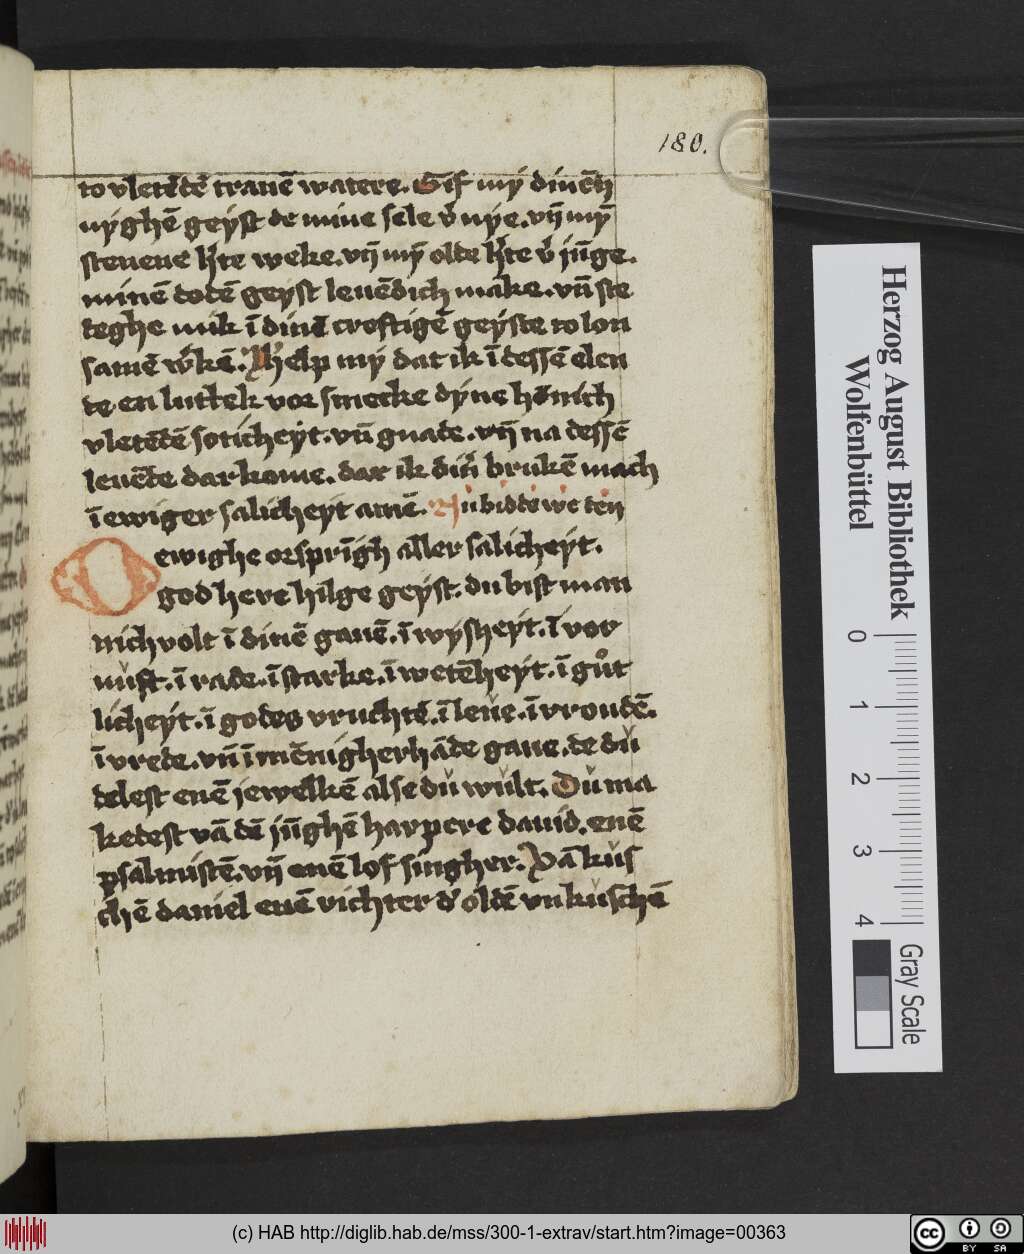 180.
to vletēdē tranē watere. Gif mẏ dinēn
nẏghē geẏst de mine sele v̄nẏe. vn̄ mẏ
stenene h̓te weke. vn̄ mẏ olde h̓te v̄ jūge.
minē dodē geyst leuēdich make. vn̄ ste
deghe mik ī dinē creftigē geẏste to lon
samē w̓kē. Help mẏ dat ik ī dessē elen
de en luttek vor smecke dẏne honnich
vletēdē soticheẏt. vn̄ gnade. vn̄ na dessē
leuēde dar kome. dar ik din̓ brukē mach
ī ewiger salicheẏt amē. Nu bidde we den
O ewighe orsprīgh aller salicheẏt.
god here hilge geẏst. du bist man
nichvolt ī dinē gauē. ī wẏsheẏt. ī vor
nuft. ī rade. ī starke. ī wetēheẏt. ī gůt
licheẏt. ī godes vruchtē. ī leue. ī vroudē.
ī vrede. vn̄ ī mēnigherhāde gaue. de du
delest enē jewelkē alse du wult. Du ma
kedest vā dē jūghē harpere dauid. enē
psalmistē. vn̄ enē lof singher. Vā kus
chē daniel enē richter d̓ oldē vnkuschē
Herzog August Bibliothek
Wolfenbüttel
0 1 2 3 4
Gray Scale
(c) HAB http://diglib.hab.de/mss/300-1-extrav/start.htm?image=00363
cc BY SA